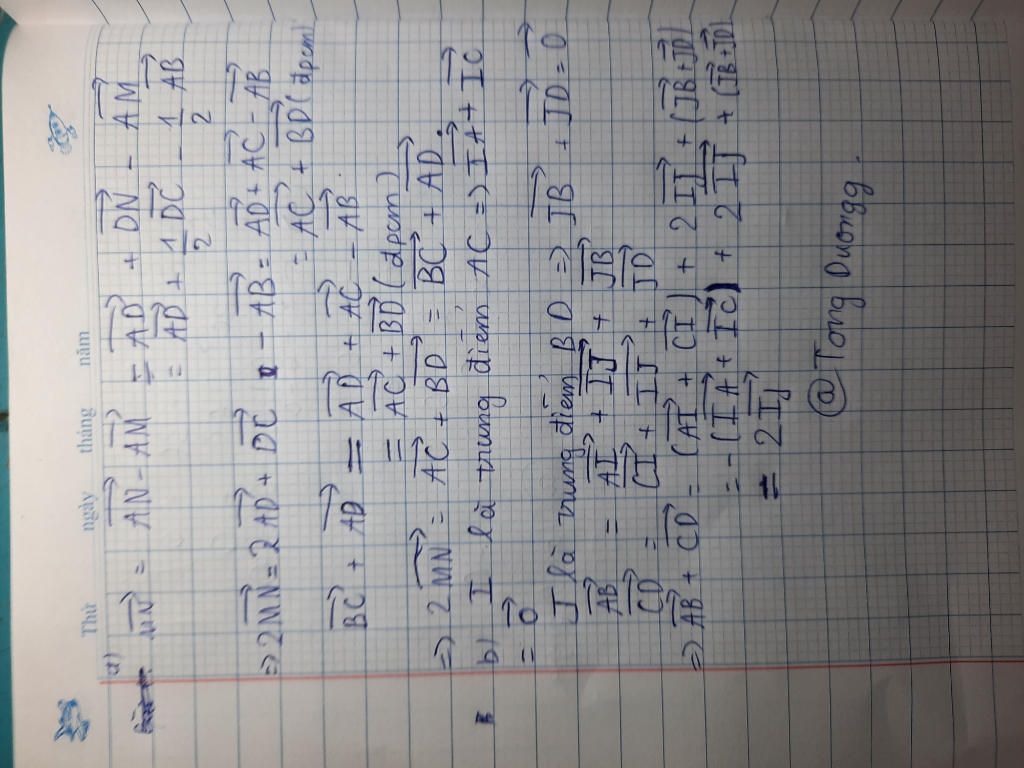 Thứ ngày tháng năm
a)
MN = AN - AN = AD + DN - AM
= AD + 1/2 DC - 1/2 AB
=> 2MN = 2AD + DC - AB = AD + AC - AB
= AC + BD (đpcm)
BC + AD = AD + AC - AB
= AC + BD (đpcm)
=> 2MN = AC + BD = BC + AD.
b) I là trung điểm AC => IA + IC
= 0
J là trung điểm BD => JB + JD = 0
AB = AI + IJ + JB
CD = CI + IJ + JD
=> AB + CD = (AI + CI) + 2IJ + (JB + JD)
= -(IA + IC) + 2IJ + (JB + JD)
= 2IJ
@Tong Duongg.